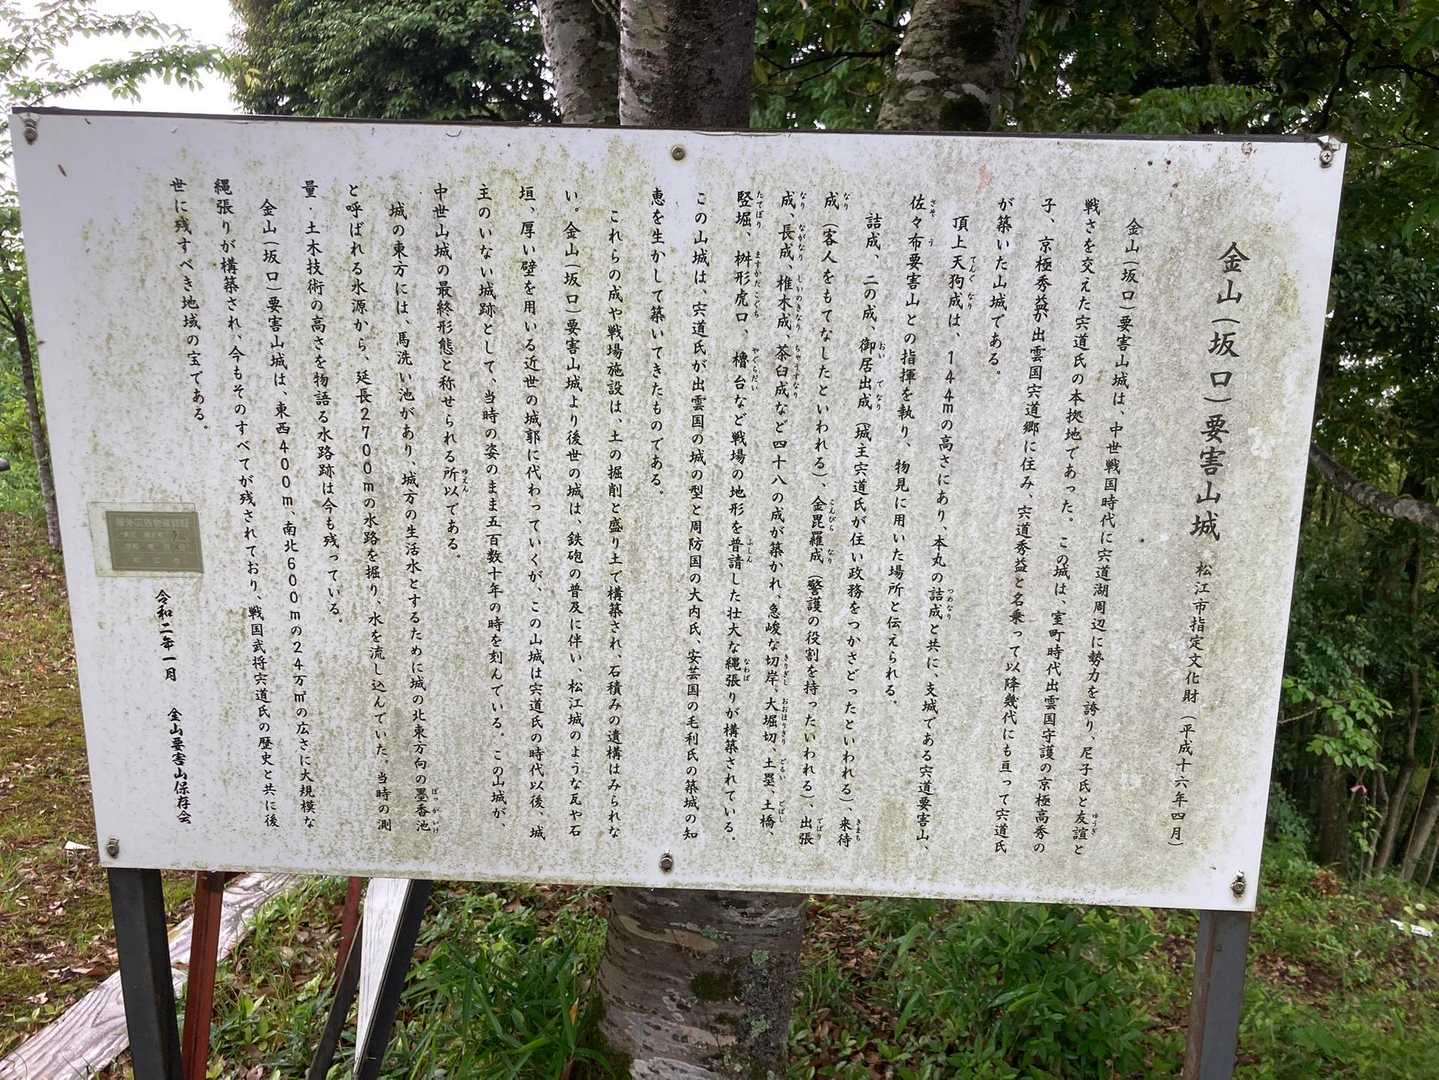 金山(坂口)要害山城 松江市指定文化財 (平成十六年四月)
金山(坂口)要害山城は、中世戦国時代に宍道湖周辺に勢力を誇り、尼子氏と友誼と
戦さを交えた宍道氏の本拠地であった。この城は、室町時代出雲国守護の京極高秀の
子、京極秀益が出雲国宍道郷に住み、宍道秀益と名乗って以降幾代にも亘って宍道氏
が築いた山城である。
頂上天狗成は、144mの高さにあり、本丸の詰成と共に、支城である宍道要害山、
佐々布要害山との指揮を執り、物見に用いた場所と伝えられる。
詰成、二の成、御居出成(城主宍道氏が住い政務をつかさどったといわれる)、来待
成(客人をもてなしたといわれる)、金毘羅成(警護の役割を持ったいわれる)、出張
成、長成、椎木成、茶臼成など四十八の成が築かれ、急峻な切岸、大堀切、土塁、土橋、
竪堀、桝形虎口、櫓台など戦場の地形を普請した壮大な縄張りが構築されている。
この山城は、宍道氏が出雲国の城の型と周防国の大内氏、安芸国の毛利氏の築城の知
恵を生かして築いてきたものである。
これらの成や戦場施設は、土の掘削と盛り土で構築され、石積みの遺構はみられな
い。金山(坂口)要害山城より後世の城は、鉄砲の普及に伴い、松江城のような瓦や石
垣、厚い壁を用いる近世の城郭に代わっていくが、この山城は宍道氏の時代以後、城
主のいない城跡として、当時の姿のまま五百数十年の時を刻んでいる。この山城が、
中世山城の最終形態と称せられる所以である。
城の東方には、馬洗い池があり、城方の生活水とするために城の北東方向の墨香池
と呼ばれる水源から、延長2700mの水路を掘り、水を流し込んでいた、当時の測
量・土木技術の高さを物語る水路跡は今も残っている。
金山(坂口)要害山城は、東西400m、南北600mの24万㎡の広さに大規模な
縄張りが構築され、今もそのすべてが残されており、戦国武将宍道氏の歴史と共に後
世に残すべき地域の宝である。
令和二年一月 金山要害山保存会